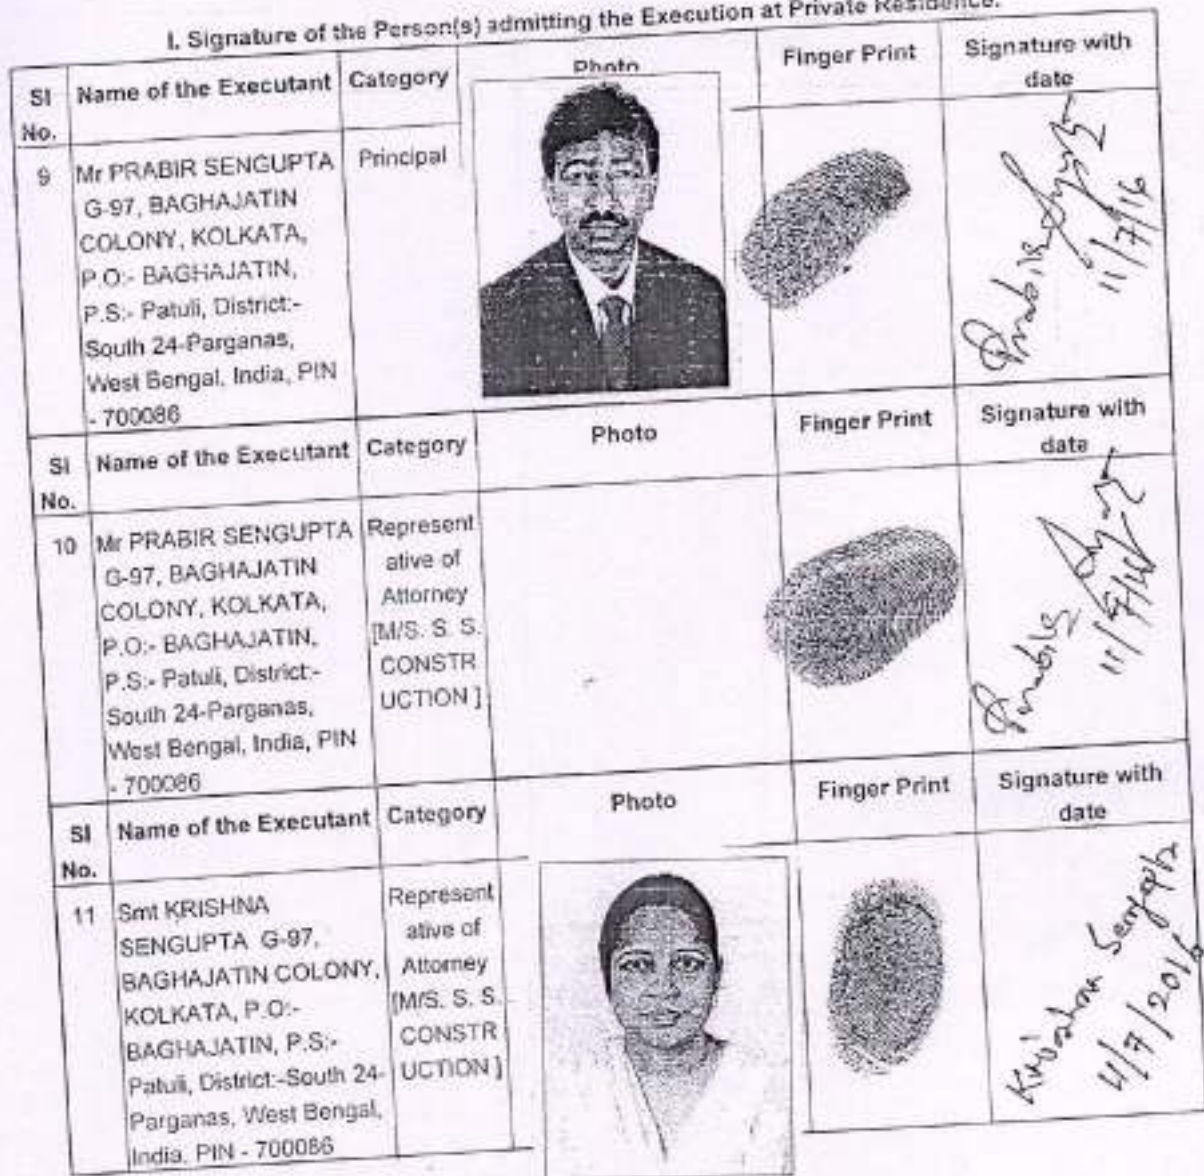 I. Signature of the Person(s) admitting the Execution at Private Residence.
Sl No. Name of the Executant Category Photo Finger Print Signature with date
9 Mr PRABIR SENGUPTA Principal
G-97, BAGHAJATIN
COLONY, KOLKATA,
P.O:- BAGHAJATIN,
P.S:- Patuli, District:-
South 24-Parganas,
West Bengal, India, PIN
- 700086
Prabir
11/7/16
Sl No. Name of the Executant Category Photo Finger Print Signature with date
10 Mr PRABIR SENGUPTA
G-97, BAGHAJATIN
COLONY, KOLKATA,
P.O:- BAGHAJATIN,
P.S:- Patuli, District:-
South 24-Parganas,
West Bengal, India, PIN
- 700086
Represent
ative of
Attorney
[M/S. S. S.
CONSTR
UCTION ]
Prabir
11/7/16
Sl No. Name of the Executant Category Photo Finger Print Signature with date
11 Smt KRISHNA
SENGUPTA G-97,
BAGHAJATIN COLONY,
KOLKATA, P.O:-
BAGHAJATIN, P.S:-
Patuli, District:-South 24-
Parganas, West Bengal,
India, PIN - 700086
Represent
ative of
Attorney
[M/S. S. S.
CONSTR
UCTION ]
Krishna Sengupta
11/7/2016